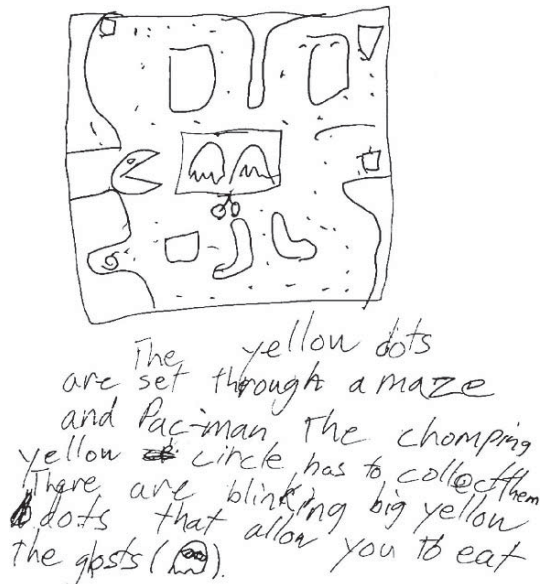 The yellow dots
are set through a maze
and Pac-man The chomping
yellow circle has to collect them
There are blinking big yellow
dots that allow you to eat
the ghosts ( ).